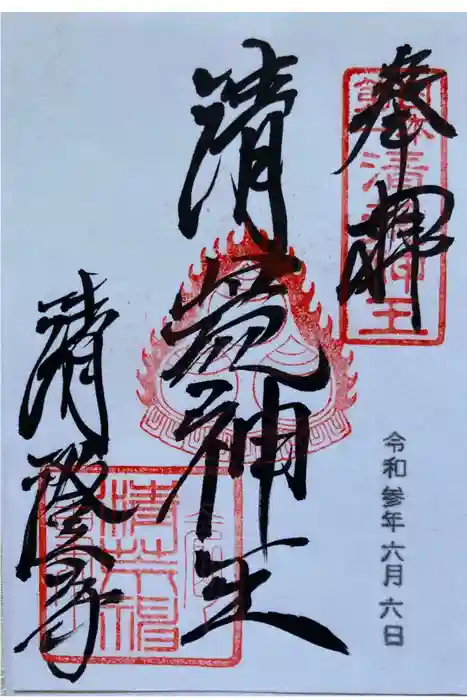 奉拝
清荒神王
清荒神王
清澄寺
清荒神
令和参年六月六日